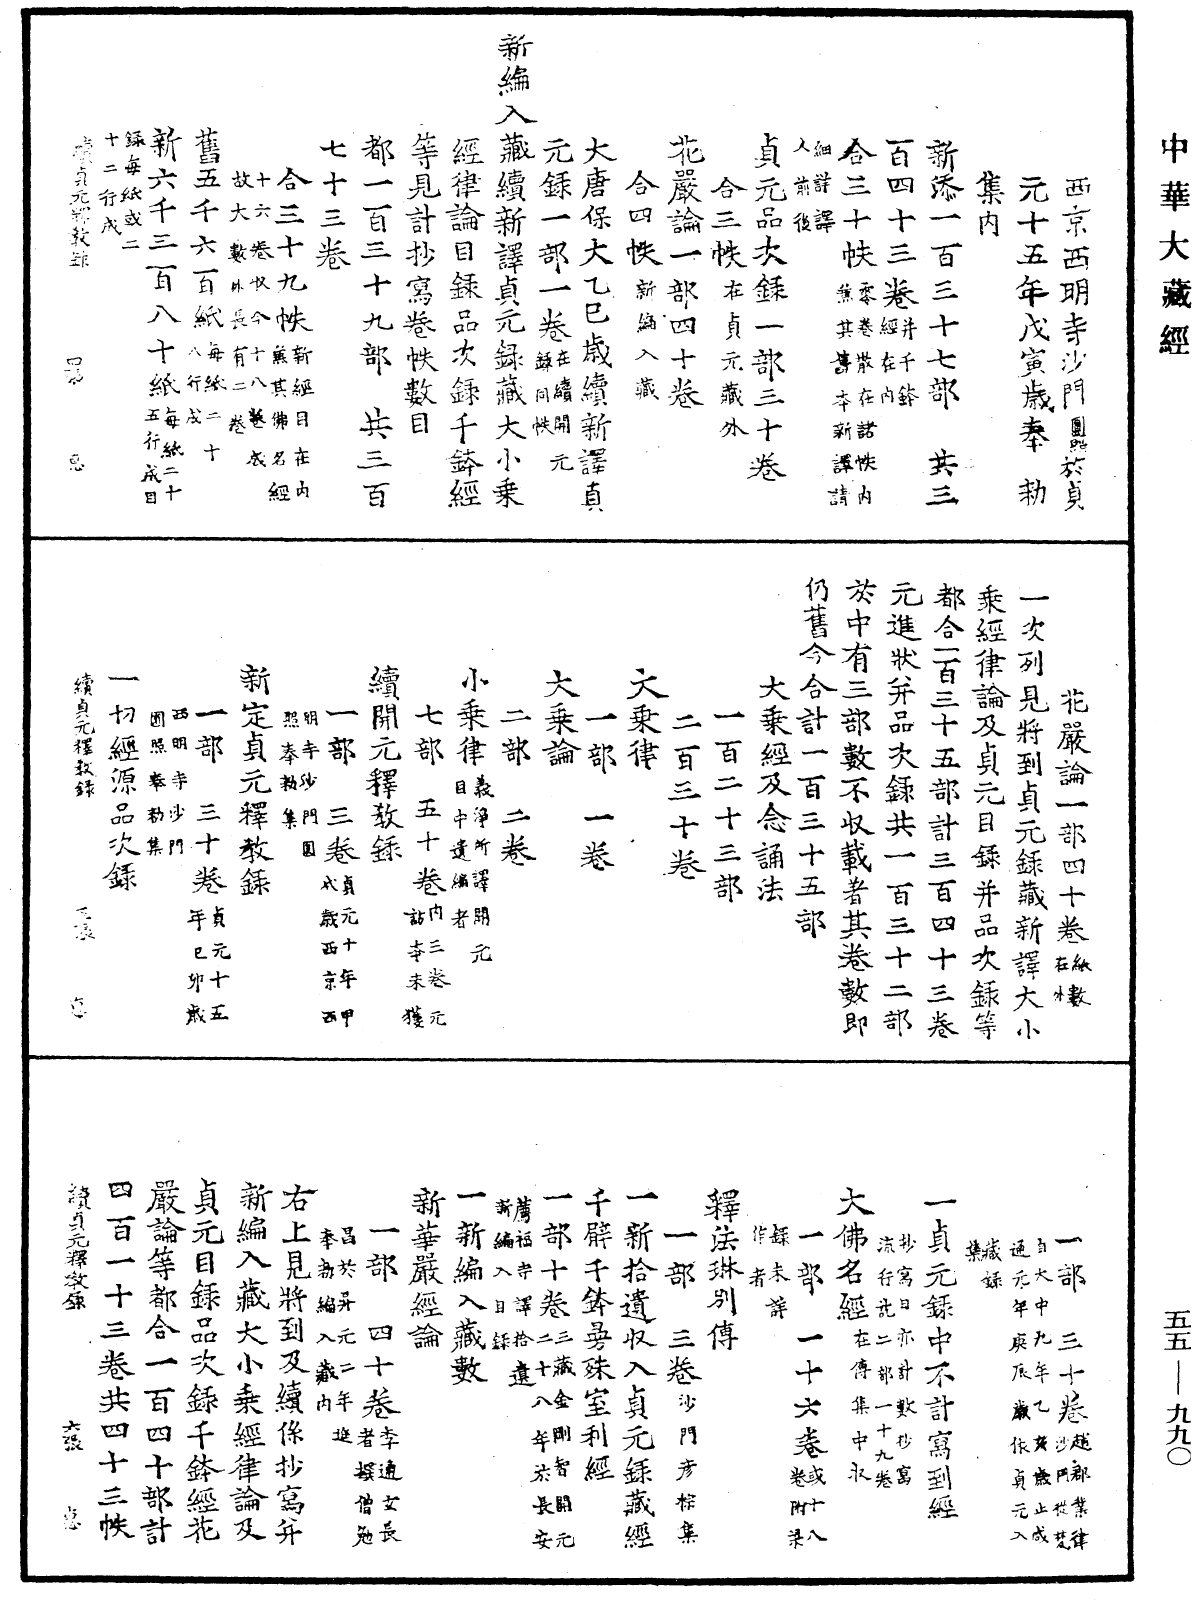 中華大藏經
西京西明寺沙門圓照於貞
元十五年戊寅歲奉　勅
集內
新添一百三十七部　共三
百四十三卷并千鉢經在內
合三十帙零卷散在諸帙內兼其舊本新譯請細詳譯人前後
貞元品次錄一部三十卷
合三帙在貞元藏外
花嚴論一部四十卷
合四帙新編入藏
大唐保大乙巳歲續新譯貞
元錄一部一卷在續開元錄同帙
新編入藏續新譯貞元錄藏大小乘
經律論目錄品次錄千鉢經
等見計抄寫卷帙數目
都一百三十九部　共三百
七十三卷
合三十九帙新經目在內兼其佛名經十六卷收今十八卷成故大數外長有二卷
舊五千六百紙每紙二十八行成
新六千三百八十紙每紙二十五行成目錄每紙或二十二行成
續貞元釋教錄　四張　惡
花嚴論一部四十卷紙數在外
一次列見將到貞元錄藏新譯大小
乘經律論及貞元目錄并品次錄等
都合一百三十五部計三百四十三卷
元進狀并品次錄共一百三十二部
於中有三部數不收載者其卷數即
仍舊今合計一百三十五部
大乘經及念誦法
一百二十三部
二百三十卷
大乘律
一部　一卷
大乘論
二部　二卷
小乘律義淨所譯開元目中遺編者
七部　五十卷內三卷元訪本未獲
續開元釋教錄
一部　三卷貞元十年甲戌歲西京西明寺沙門圓照奉勅集
新定貞元釋教錄
一部　三十卷貞元十五年己卯歲西明寺沙門圓照奉勅集
一切經源品次錄
續貞元釋教錄　五張　惡
一部　三十卷趙郡業律沙門從梵自大中九年乙亥歲止咸通元年庚辰歲依貞元入藏錄集
一貞元錄中不計寫到經
大佛名經抄寫日亦計數抄寫流行訖二部一十九卷在傳集中收
一部　一十六卷或十八卷附梁錄未詳作者
釋法琳別傳
一部　三卷沙門彥悰集
一新拾遺收入貞元錄藏經
千臂千鉢曼殊室利經
一部十卷三藏金剛智開元二十八年於長安薦福寺譯拾遺新編入目錄
一新編入藏數
新華嚴經論
一部　四十卷李通玄長者撰僧勉昌於昇元二年進奉勅編入藏內
右上見將到及續係抄寫并
新編入藏大小乘經律論及
貞元目錄品次錄千鉢經花
嚴論等都合一百四十部計
四百一十三卷共四十三帙
續貞元釋教錄　六張　惡
五五—九九〇